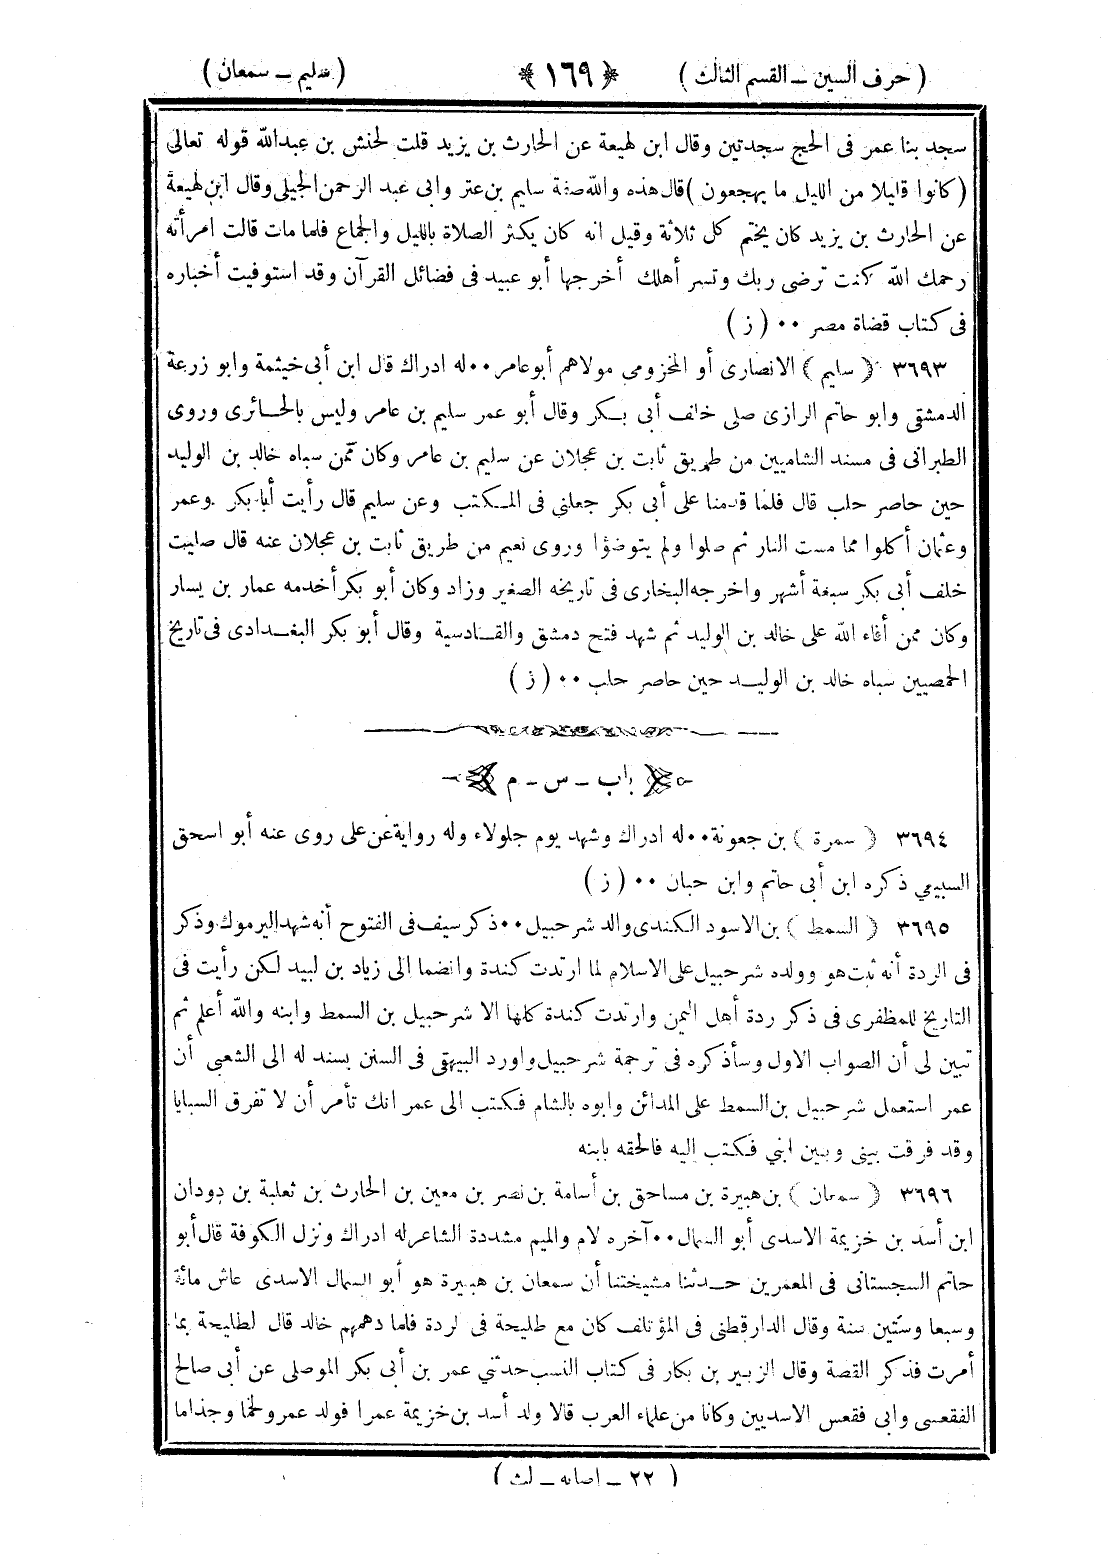 ( حرف السين ــ القسم الثالث ) ﴿ ١٦٩ ﴾ ( سليم ــ سمعان )
سجد بنا عمر فى الحج سجدتين وقال ابن لهيعة عن الحارث بن يزيد قلت لحنش بن عبدالله قوله تعالى
(كانوا قليلا من الليل ما يهجعون ) قال هذه والله صفة سليم بن عتر وابى عبد الرحمن الجيلى وقال ابن لهيعة
عن الحارث بن يزيد كان يختم كل ثلاثة وقيل انه كان يكثر الصلاة بالليل والجماع فلما مات قالت امرأته
رحمك الله كنت ترضى ربك وتسر أهلك أخرجها أبو عبيد فى فضائل القرآن وقد استوفيت أخباره
فى كتاب قضاة مصر ٠٠ ( ز )
٣٦٩٣ ( سليم ) الانصارى أو المخزومى مولاهم أبو عامر ٠٠ له ادراك قال ابن أبى خيثمة وابو زرعة
الدمشقى وابو حاتم الرازى صلى خلف أبى بكر وقال أبو عمر سليم بن عامر وليس بالخبائرى وروى
الطبرانى فى مسند الشاميين من طريق ثابت بن عجلان عن سليم بن عامر وكان ممن سباه خالد بن الوليد
حين حاصر حلب قال فلما قدمنا على أبى بكر جعلنى فى المكتب وعن سليم قال رأيت أبا بكر وعمر
وعثمان أكلوا مما مست النار ثم صلوا ولم يتوضؤا وروى نعيم من طريق ثابت بن عجلان عنه قال صليت
خلف أبى بكر سبعة أشهر واخرجه البخارى فى تاريخه الصغير وزاد وكان أبو بكر أخدمه عمار بن يسار
وكان ممن أفاء الله على خالد بن الوليد ثم شهد فتح دمشق والقادسية وقال أبو بكر البغدادى فى تاريخ
الحمصيين سباه خالد بن الوليد حين حاصر حلب ٠٠ ( ز )
باب ــ س ــ م
٣٦٩٤ ( سمرة ) بن جعونة ٠٠ له ادراك وشهد يوم جلولاء وله رواية عن على روى عنه أبو اسحق
السبيعى ذكره ابن أبى حاتم وابن حبان ٠٠ ( ز )
٣٦٩٥ ( السمط ) بن الاسود الكندى والد شرحبيل ٠٠ ذكر سيف فى الفتوح أنه شهد اليرموك وذكر
فى الردة أنه ثبت هو وولده شرحبيل على الاسلام لما ارتدت كندة وانضما الى زياد بن لبيد لكن رأيت فى
التاريخ للمظفرى فى ذكر ردة أهل اليمن وارتدت كندة كلها الا شرحبيل بن السمط وابنه والله أعلم ثم
تبين لى أن الصواب الاول وسأذكره فى ترجمة شرحبيل واورد البيهقى فى السنن بسند له الى الشعبى أن
عمر استعمل شرحبيل بن السمط على المدائن وابوه بالشام فكتب الى عمر انك تأمر أن لا تفرق السبايا
وقد فرقت بينى وبين ابنى فكتب اليه فالحقه بابنه
٣٦٩٦ ( سمعان ) بن هبيرة بن مساحق بن أسامة بن نصر بن معين بن الحارث بن ثعلبة بن دودان
ابن أسد بن خزيمة الاسدى أبو السمال ٠٠ آخره لام والميم مشددة الشاعر له ادراك ونزل الكوفة قال أبو
حاتم السجستانى فى المعمرين حدثنا مشيختنا أن سمعان بن هبيرة هو أبو السمال الاسدى عاش مائة
وسبعا وستين سنة وقال الدارقطنى فى المؤتلف كان مع طليحة فى لردة فلما دهمهم خالد قال لطليحة بما
أمرت فذكر القصة وقال الزبير بن بكار فى كتاب النسب حدثنى عمر بن أبى بكر الموصلى عن أبى صالح
الفقعسى وابى فقعس الاسديين وكانا من علماء العرب قالا ولد أسد بن خزيمة عمرا فولد عمرو لخما وجذاما
( ٢٢ ــ اصابه ــ لث )